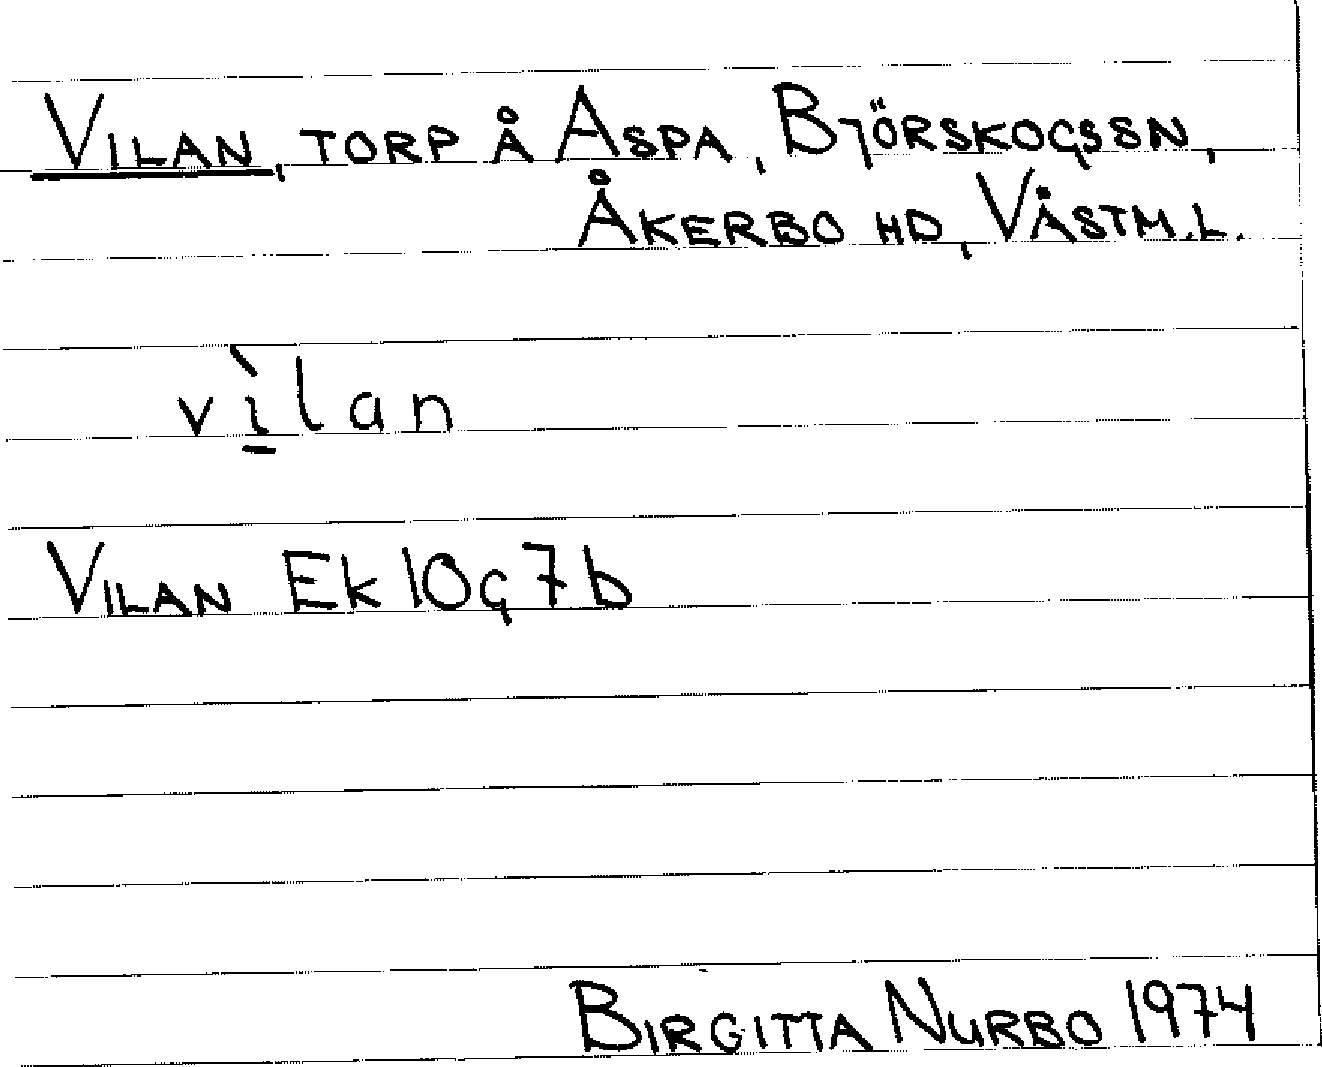 VILAN, TORP Å ASPA, BJÖRSKOGSSN,
ÅKERBO HD, VÄSTM.L.
vìlan
VILAN Ek 10g7b
BIRGITTA NURBO 1974